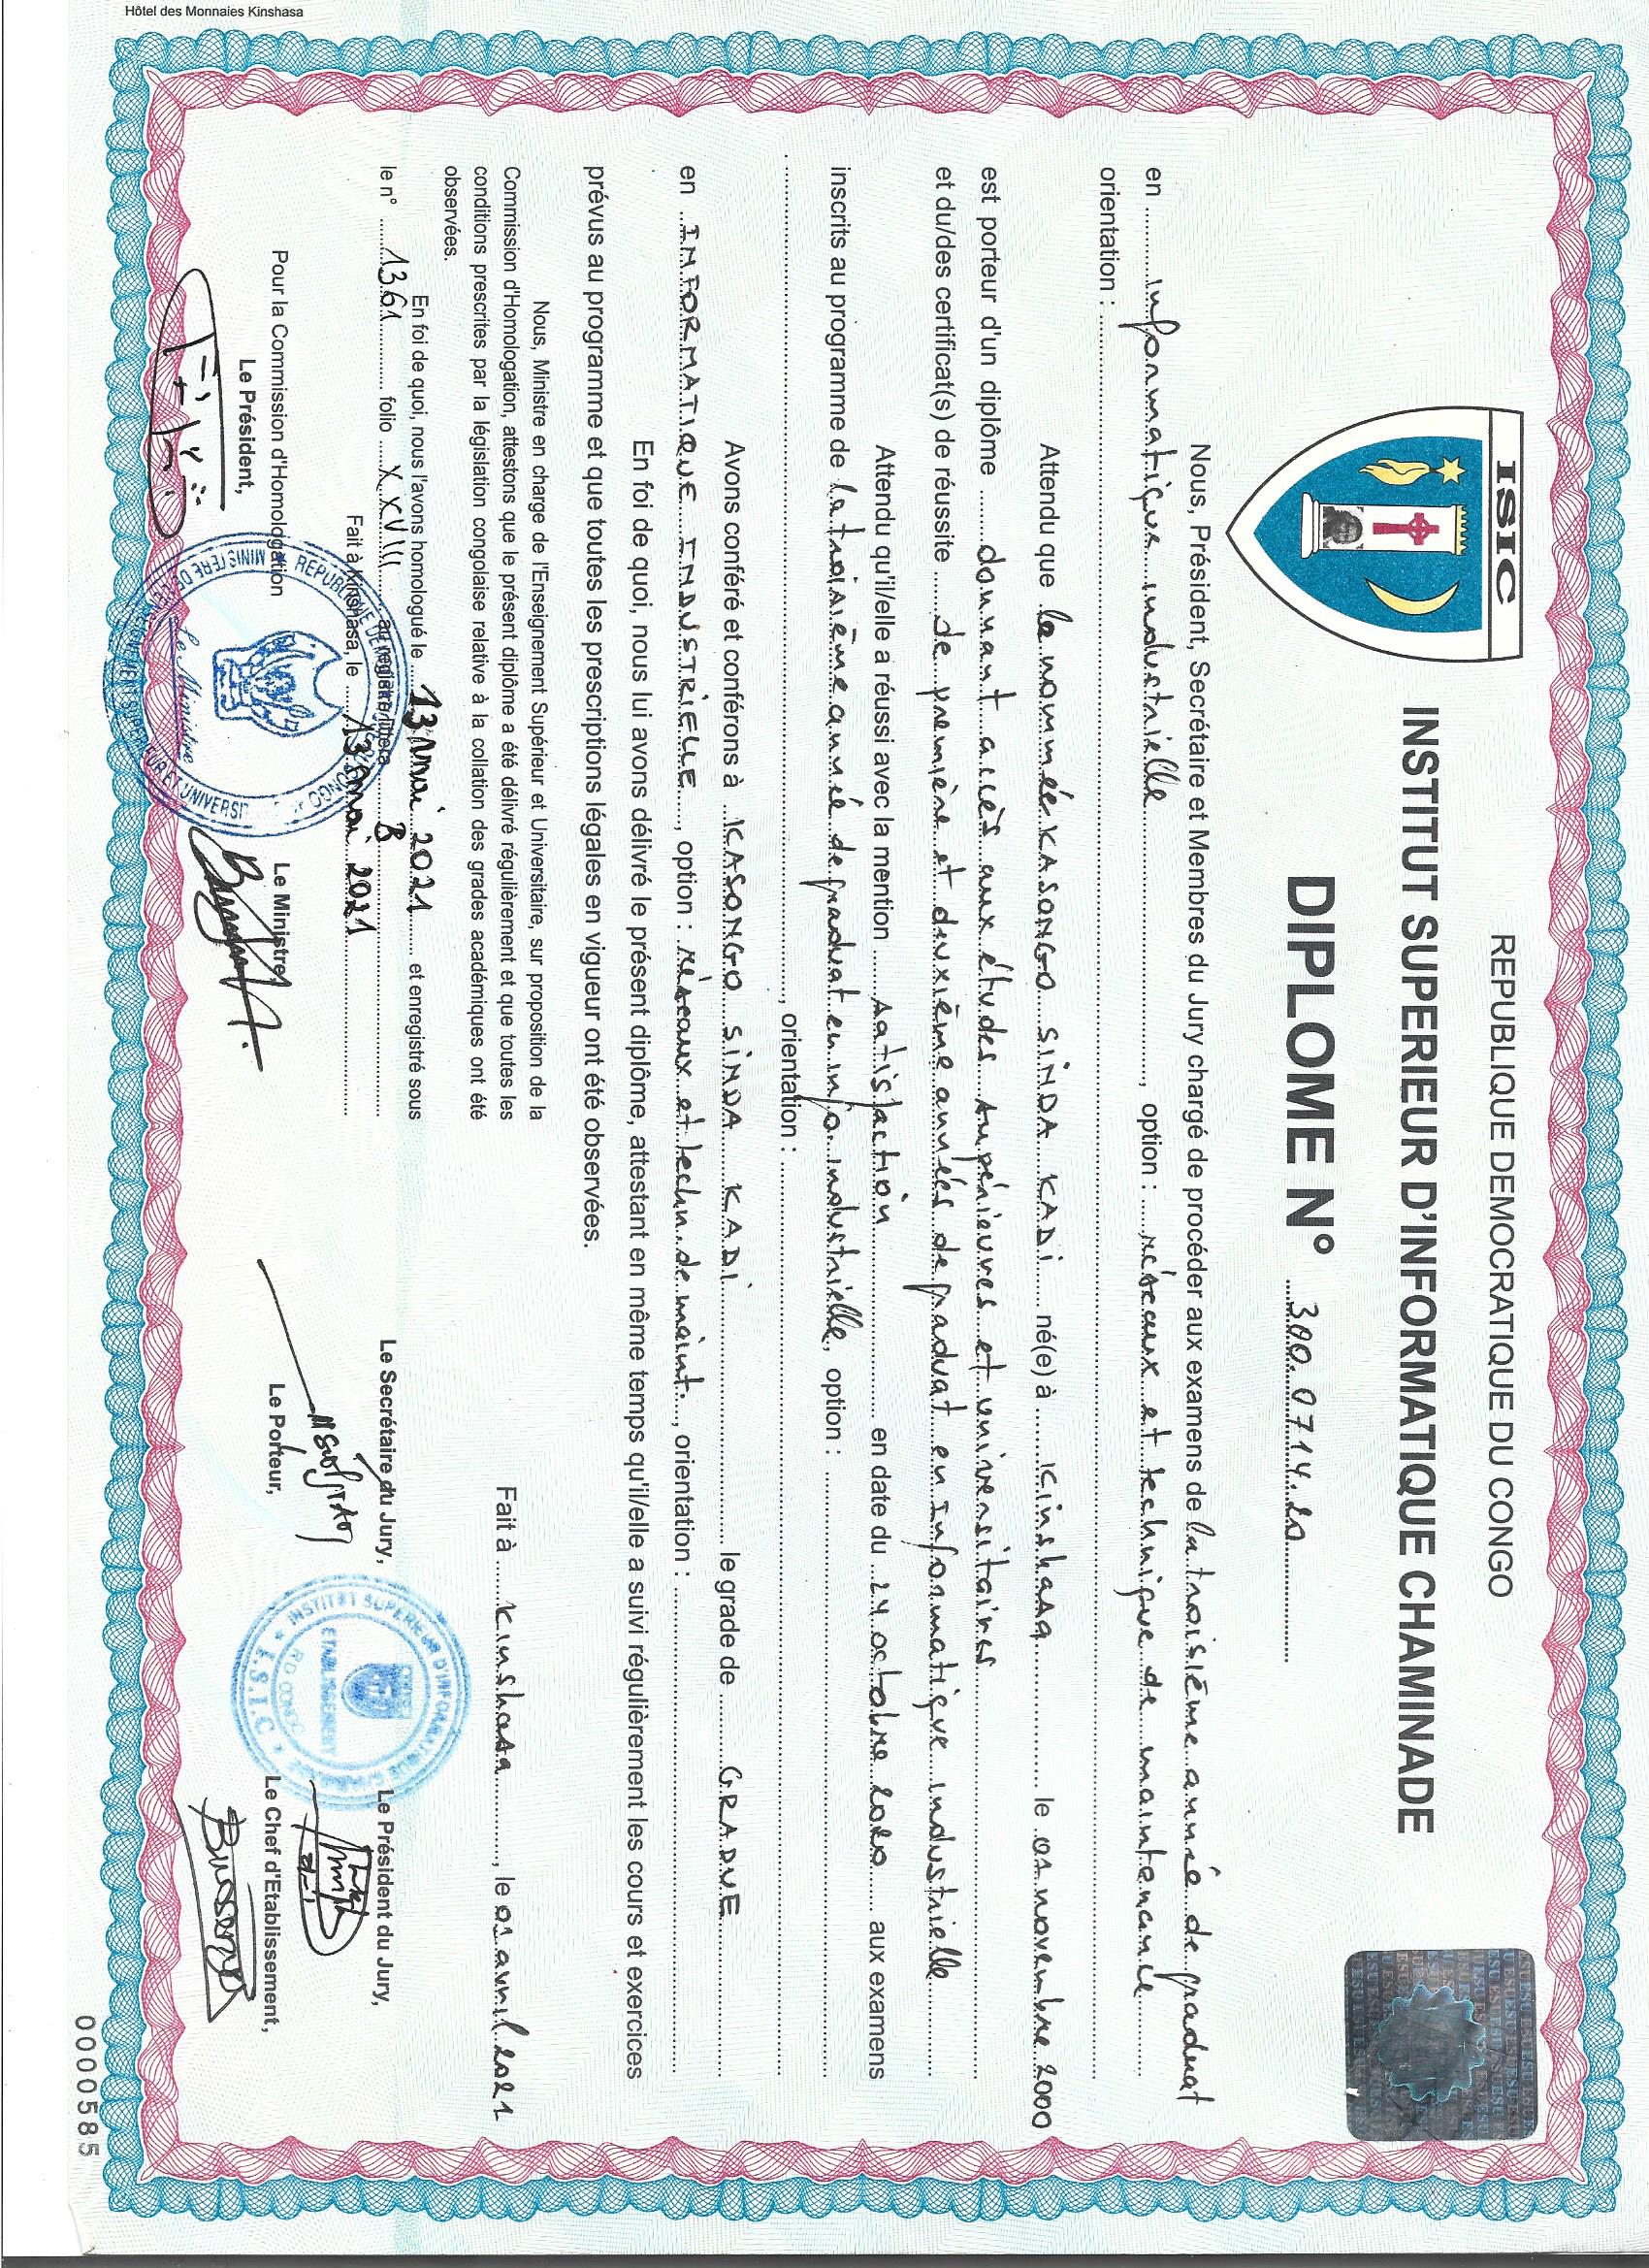 ISIC
REPUBLIQUE DEMOCRATIQUE DU CONGO
INSTITUT SUPERIEUR D'INFORMATIQUE CHAMINADE
DIPLOME N° 300.0714.20
Nous, Président, Secrétaire et Membres du Jury chargé de procéder aux examens de la troisième année de graduat
en informatique industrielle, option : réseaux et technique de maintenance
orientation :
Attendu que la nommée KASONGO SINDA KADI né(e) à Kinshasa le 01 novembre 2000
est porteur d'un diplôme donnant accès aux études supérieures et universitaires
et du/des certificat(s) de réussite de première et deuxième années de graduat en informatique industrielle
Attendu qu'il/elle a réussi avec la mention satisfaction en date du 24 octobre 2020 aux examens
inscrits au programme de la troisième année de graduat en info. industrielle, option :
, orientation :
Avons conféré et conférons à KASONGO SINDA KADI le grade de GRADUE
en INFORMATIQUE INDUSTRIELLE, option : réseaux et techn. de maint., orientation :
En foi de quoi, nous lui avons délivré le présent diplôme, attestant en même temps qu'il/elle a suivi régulièrement les cours et exercices
prévus au programme et que toutes les prescriptions légales en vigueur ont été observées.
Nous, Ministre en charge de l'Enseignement Supérieur et Universitaire, sur proposition de la
Commission d'Homologation, attestons que le présent diplôme a été délivré régulièrement et que toutes les
conditions prescrites par la législation congolaise relative à la collation des grades académiques ont été
observées.
En foi de quoi, nous l'avons homologué le 13 mai 2021 et enregistré sous
le n° 1361 folio XXVIII au registre littera B
Fait à Kinshasa, le 13 mai 2021
Pour la Commission d'Homologation
Le Président,
Le Ministre,
Le Ministre
Fait à Kinshasa, le 01 avril 2021
Le Secrétaire du Jury,
Le Président du Jury,
Le Porteur,
Le Chef d'Etablissement,
ETABLISSEMENT
RD CONGO
I.S.I.C
Hôtel des Monnaies Kinshasa
0000585